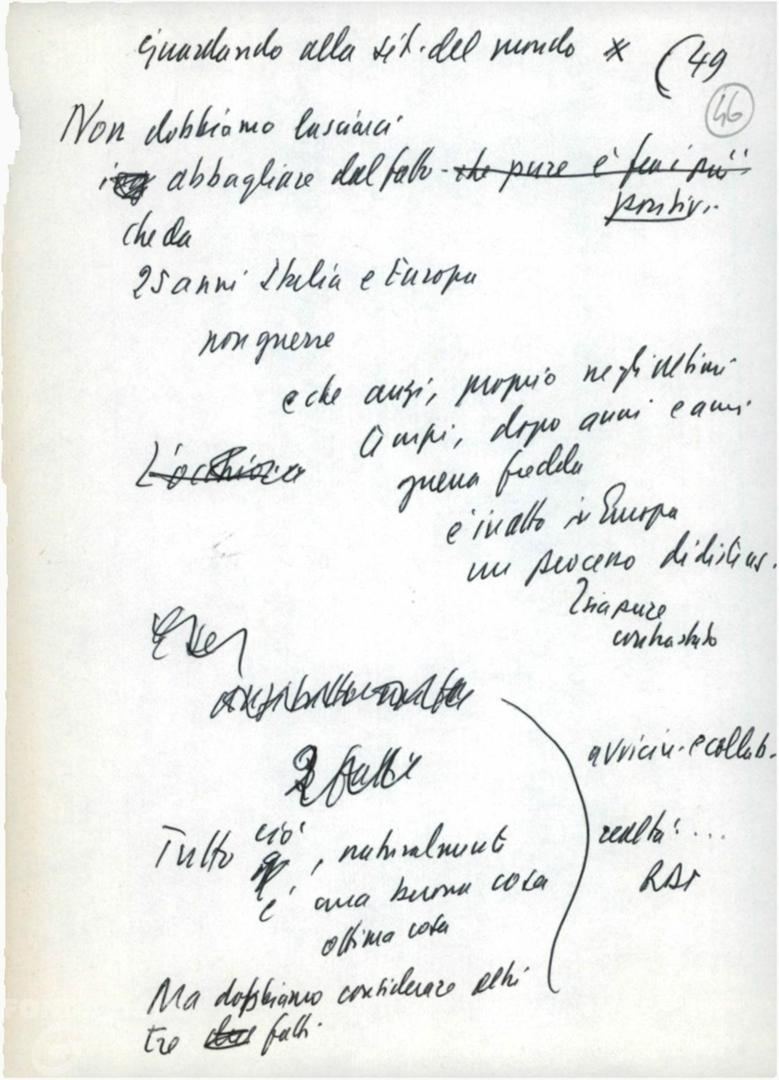 Guardando alla sit. del mondo * (49
46
Non dobbiamo lasciarci
abbagliare dal fatto - che pure è
positiv..
che da
25 anni Italia e Europa
non guerre
e che anzi, proprio negli ultimi
tempi, dopo anni e anni
guerra fredda
è in atto in Europa
un processo di disten.
sia pure
contrastato
avvicin. e collab.
2 fatti
realtà: ...
Tutto ciò, naturalmente
è una buona cosa
ottima cosa
Ma dobbiamo considerare altri
tre due fatti.